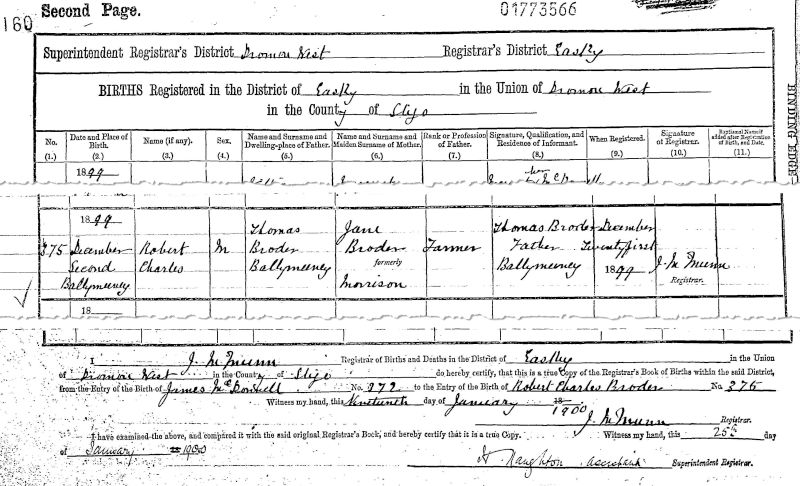 160 Second Page. 01773566
Superintendent Registrar's District Dromore West Registrar's District Easky
BIRTHS Registered in the District of Easky in the Union of Dromore West
in the County of Sligo
BINDING EDGE
No. Date and Place of Birth. Name (if any). Sex. Name and Surname and Dwelling-place of Father. Name and Surname and Maiden Surname of Mother. Rank or Profession of Father. Signature, Qualification, and Residence of Informant. When Registered. Signature of Registrar. Baptismal Name if added after Registration of Birth, and Date.
(1.) (2.) (3.) (4.) (5.) (6.) (7.) (8.) (9.) (10.) (11.)
1899
1899 Thomas Jane Thomas Broder December
375 December Robert M Broder Broder Farmer Father Twentyfirst
Second Charles Ballymeeney formerly Ballymeeney 1899 J McMunn
Ballymeeney Morrison Registrar.
18
I J McMunn Registrar of Births and Deaths in the District of Easky in the Union
of Dromore West in the County of Sligo do hereby certify, that this is a true Copy of the Registrar's Book of Births within the said District,
from the Entry of the Birth of James McDonnell No. 372 to the Entry of the Birth of Robert Charles Broder No 375
Witness my hand, this Nineteenth day of January 18 1900
J McMunn Registrar.
I have examined the above, and compared it with the said original Registrar's Book, and hereby certify that it is a true Copy. Witness my hand, this 25th day
of January 1900
Naughton Assistant Superintendent Registrar.